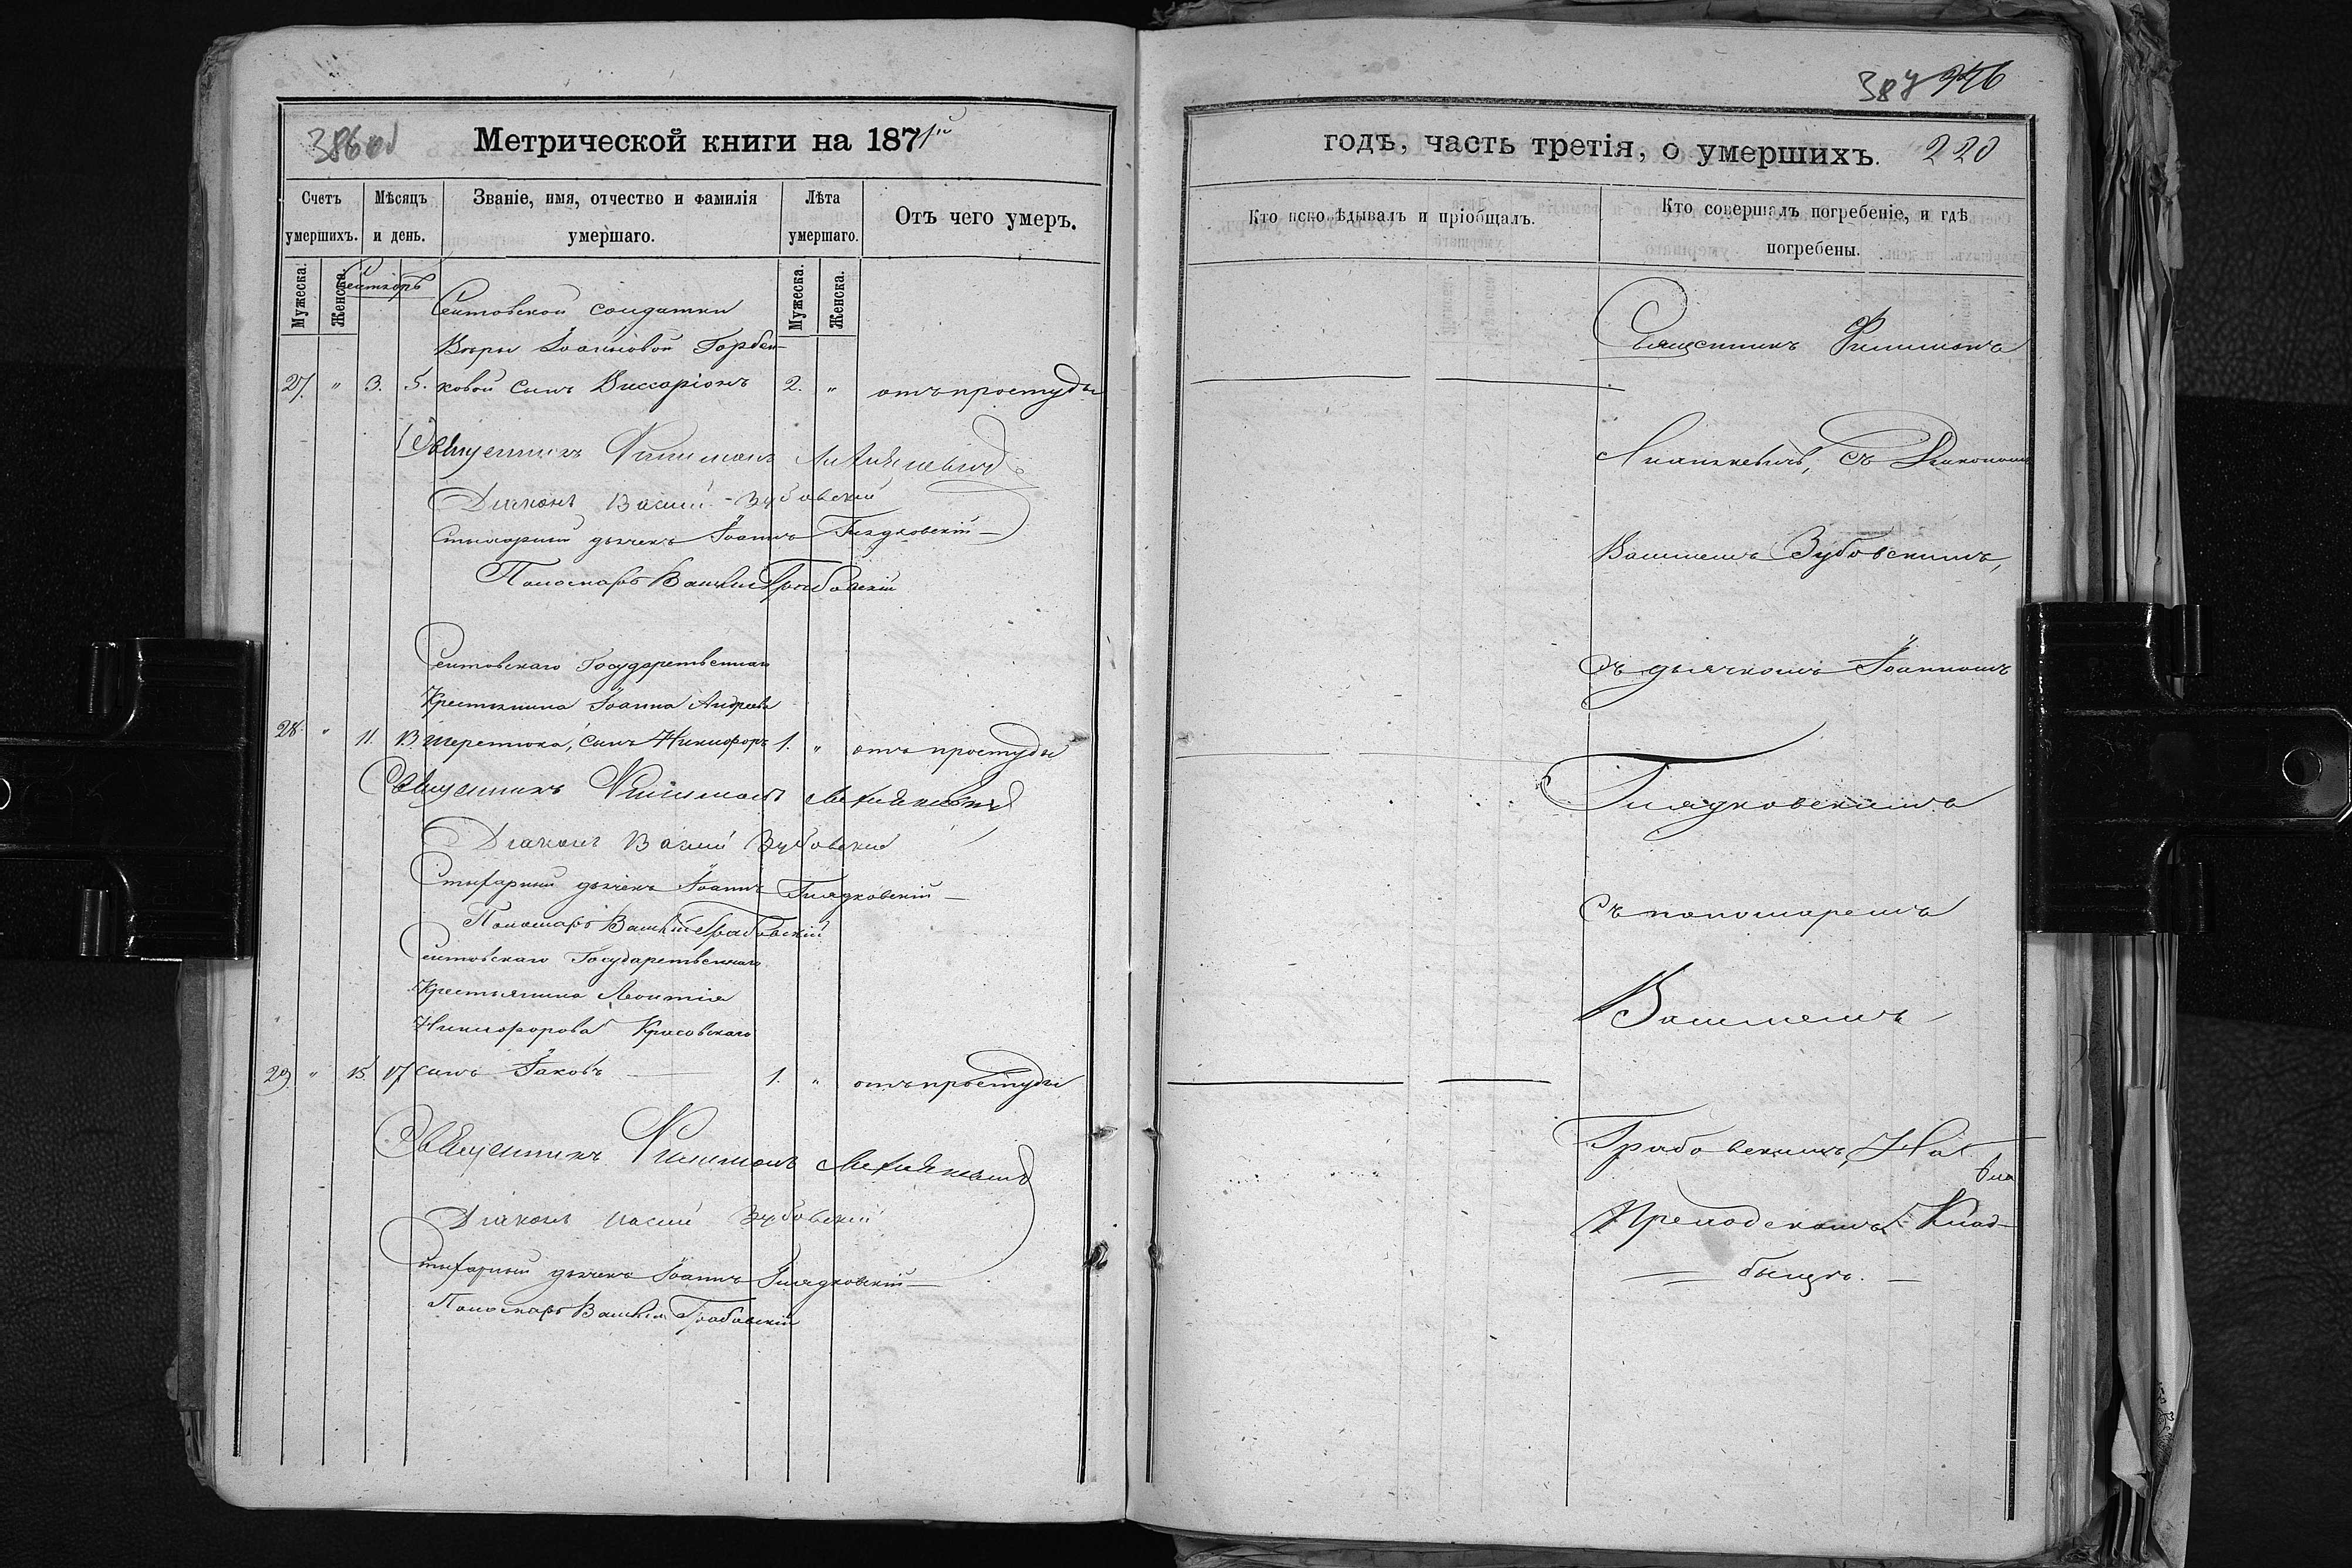 386 об
Метрической книги на 1871й
Счетъ умершихъ.
Мѣсяцъ и день.
Званіе, имя, отчество и фамилія умершаго.
Лѣта умершаго.
Отъ чего умеръ.
Мужеска.
Женска.
Мужеска.
Женска.
Сентябрь
Сентовской солдатки
Вѣры Іоанновой Горбен-
27. " 3. 5. ковой сынъ Виссаріонъ 2. " отъ простуды
Священникъ Филимонъ
Діаконъ Васілій Зубовскій
Стихарный дьячекъ Іоаннъ Глядковскій
Пономарь Василій Грабовскій
Сентовскаго Государственнаго
Крестьянина Іоанна Андреева
28. " 11. 13. Шеретюка, сынъ Никифоръ 1. " отъ простуды
Священникъ Филимонъ
Діаконъ Васілій Зубовскій
Стихарный дьячекъ Іоаннъ Глядковскій
Пономарь Василій Грабовскій
Сентовскаго Государственнаго
Крестьянина Леонтія
Никифорова Красовскаго
29. " 15. 17. сынъ Іаковъ 1. " отъ простуды
Священникъ Филимонъ
Діаконъ Васілій Зубовскій
Стихарный дьячекъ Іоаннъ Глядковскій
Пономарь Василій Грабовскій
387 346
годъ, часть третія, о умершихъ. 220
Кто исповѣдывалъ и пріобщалъ.
Кто совершалъ погребеніе, и гдѣ погребены.
Священникъ Филимонъ
съ Діакономъ
Василіемъ Зубовскимъ,
съ дьячкомъ Іоанномъ
Глядковскимъ
съ пономаремъ
Василіемъ
Грабовскимъ, На
Приходскомъ Клад-
бищѣ.